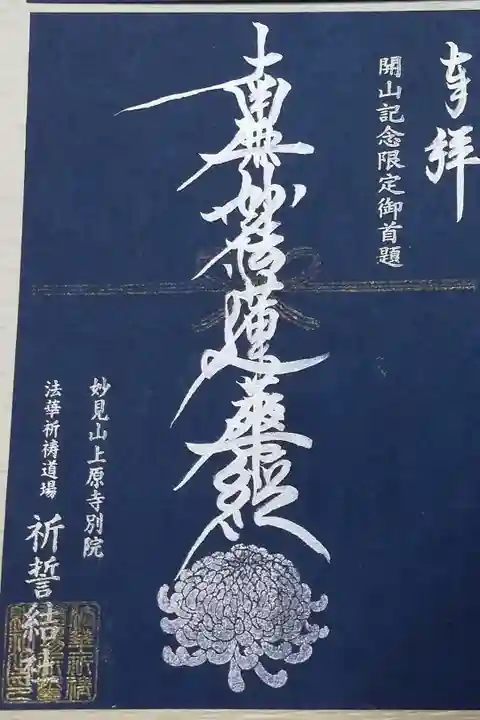 奉拝
開山記念限定御首題
南無妙法蓮華経
妙見山上原寺別院
法華祈祷道場
祈誓結社